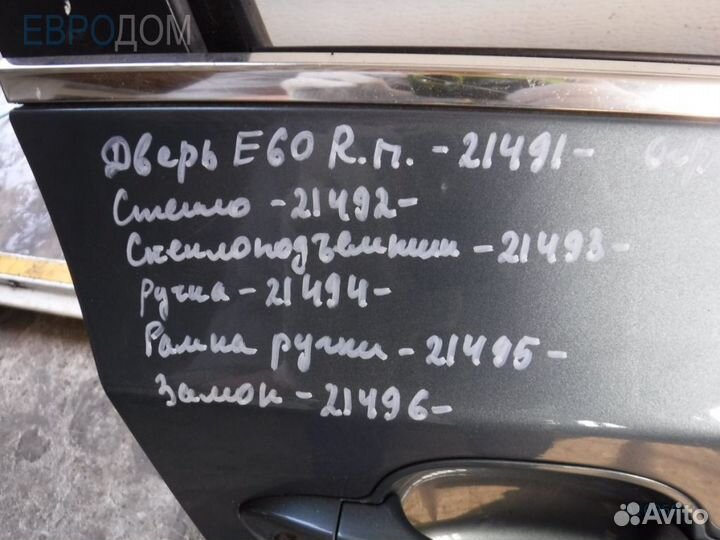 ЕВРОДОМ
Дверь E60 R.п. -21491-
Стекло -21492-
Стеклоподъемник -21493-
Ручка -21494-
Рамка ручки -21495-
Замок -21496-
Avito